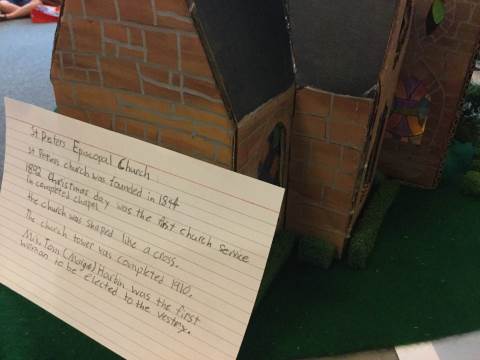 St Peters Episcopal Church
St Peters church was founded in 1844
1892 Christmas day was the first church service
in completed chapel
the church was shaped like a cross.
The church tower was completed 1910.
Mrs. Tom (Margie) Harbin was the first
woman to be elected to the vestry.